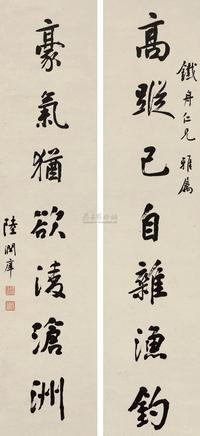 鐵舟仁兄雅屬
高蹤已自雜漁釣
豪氣猶欲凌滄洲
陸潤庠